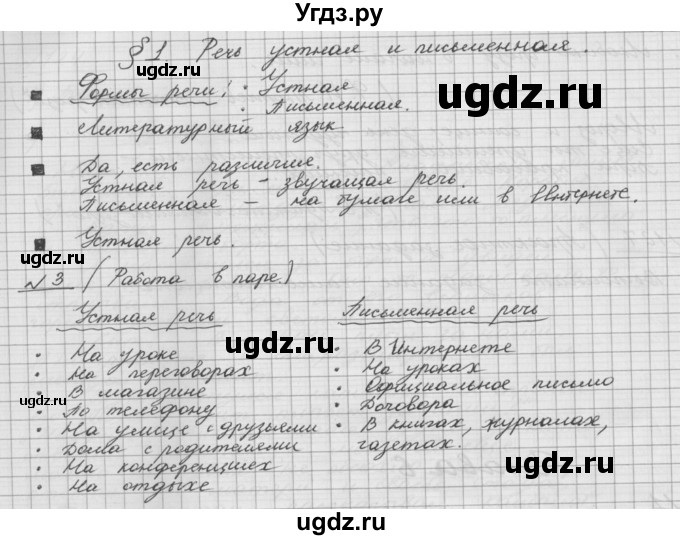 Угдз.ру
§ 1 Речь устная и письменная.
ugdz.ru
Формы речи: • Устная
ugdz.ru
• Письменная.
Литературный язык
ugdz.ru
Да, есть различия.
Устная речь – звучащая речь.
Письменная – на бумаге или в Интернете.
ugdz.ru
Устная речь.
№ 3 (Работа в паре.)
ugdz.ru
Устная речь
• На уроке
• На переговорах
• В магазине
• По телефону
• На улице с друзьями
• Дома с родителями
• На конференциях
• На отдыхе
Письменная речь
• В Интернете
• На уроках
• Официальное письмо
• Договора
• В книгах, журналах,
газетах.
ugdz.ru
ugdz.ru
ugdz.ru
ugdz.ru
ugdz.ru
ugdz.ru